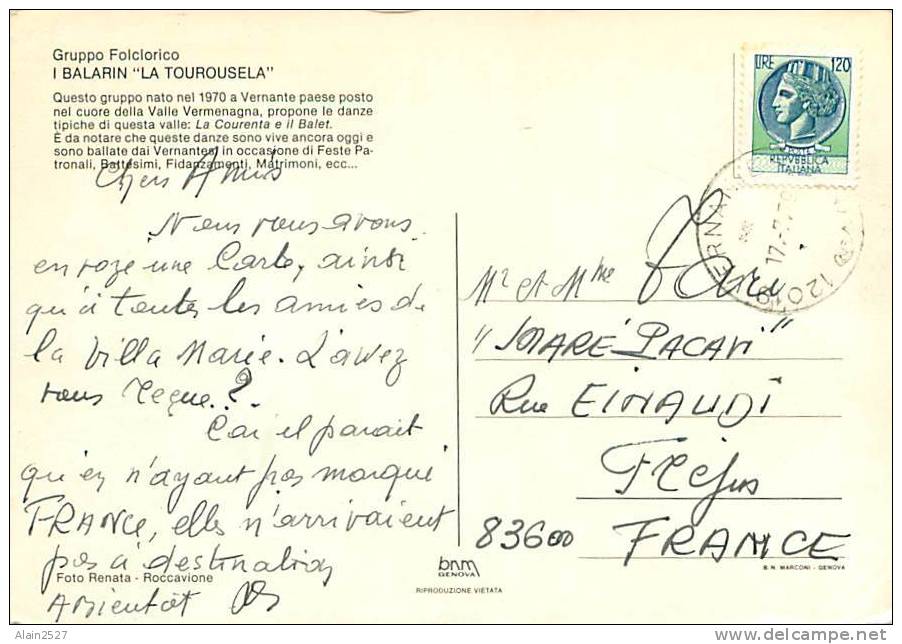 Gruppo Folclorico
I BALARIN "LA TOUROUSELA"
Questo gruppo nato nel 1970 a Vernante paese posto
nel cuore della Valle Vermenagna, propone le danze
tipiche di questa valle: La Courenta e il Balet.
È da notare che queste danze sono vive ancora oggi e
sono ballate dai Vernantesi in occasione di Feste Pa-
tronali, Battesimi, Fidanzamenti, Matrimoni, ecc...
Chers Amis
Nous vous avons
envoyé une Carte, ainsi
qu'à toutes les amies de
la Villa Marie. L'avez
vous reçue..?.
Car il parait
qu'en n'ayant pas marqué
FRANCE, elles n'arrivaient
pas à destination
A bientôt
Foto Renata - Roccavione
LIRE 120
POSTE
REPVBBLICA
ITALIANA
12019
17.-7.7
Mr et Mme
"MARE PACAN"
Rue EINAUDI
Fréjus
83600 FRANCE
bnm
GENOVA
RIPRODUZIONE VIETATA
B. N. MARCONI - GENOVA
Alain2527
delcampe.net